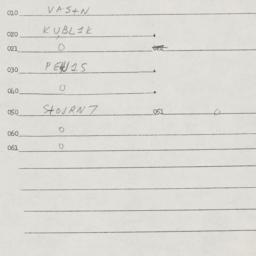 010 VASTN
020 KUBL1K
021 0
030 PEN1S
040 0
050 STOJRN7 051 0
060 0
061 0